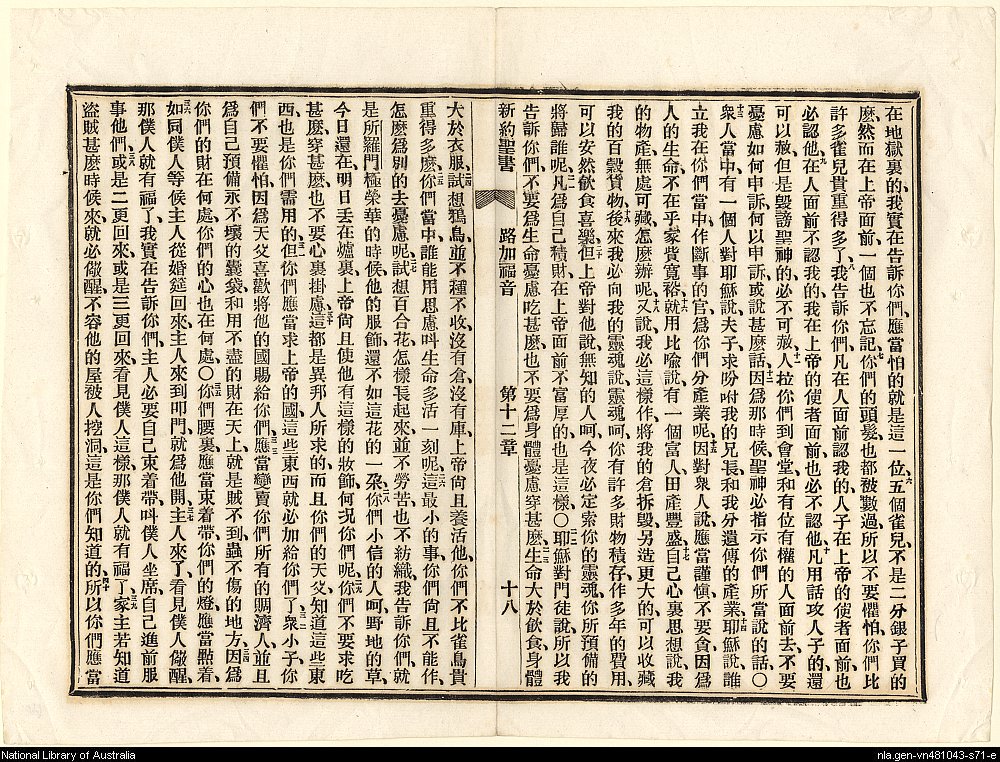 在地獄裏的、我實在告訴你們、應當怕的就是這一位、六五個雀兒、不是二分銀子買的
麽、然而在上帝面前、一個也不忘記、七你們的頭髮也都被數過、所以不要懼怕、你們比
許多雀兒貴重得多了、八我告訴你們、凡在人面前認我的、人子在上帝的使者面前也
必認他、九在人面前不認我的、我在上帝的使者面前也必不認他、十凡用話攻人子的、還
可以赦、但是毀謗聖神的、必不可赦、十一人拉你們到會堂、和有位有權的人面前去、不要
憂慮如何申訴、何以申訴、或說甚麽話、十二因爲那時候聖神必指示你們所當說的話、〇
十三衆人當中、有一個人對耶穌說、夫子、求吩咐我的兄長和我分遺傳的產業、十四耶穌說、誰
立我在你們當中作斷事的官、爲你們分產業呢、十五因對衆人說、應當謹慎不要貪、因爲
人的生命、不在乎家貲寬裕、十六就用比喩說、有一個富人、田產豐盛、十七自己心裏思想說、我
的物產、無處可藏、怎麽辦呢、十八又說、我必這樣作、將我的倉拆毀、另造更大的、可以收藏
我的百穀貨物、十九後來我必向我的靈魂說、靈魂呵、你有許多財物積存、作多年的費用、
可以安然飲食喜樂、二十但上帝對他說、無知的人呵、今夜必定索你的靈魂、你所預備的
將歸誰呢、二一凡爲自己積財、在上帝面前不富厚的、也是這樣、〇二二耶穌對門徒說、所以我
告訴你們、不要爲生命憂慮吃甚麽、也不要爲身體憂慮穿甚麽、二三生命大於飲食、身體
新約聖書 路加福音 第十二章 十八
大於衣服、二四試想鴉鳥、並不種不收、沒有倉、沒有庫、上帝尙且養活他、你們不比雀鳥貴
重得多麽、二五你們當中誰能用思慮叫生命多活一刻呢、二六這最小的事、你們尙且不能作、
怎麽爲別的去憂慮呢、二七試想百合花、怎樣長起來、並不勞苦、也不紡織、我告訴你們、就
是所羅門極榮華的時候、他的服飾還不如這花的一朶、二八你們小信的人呵、野地的草、
今日還在、明日丢在爐裏、上帝尙且使他有這樣的妝飾、何况你們呢、二九你們不要求吃
甚麽、穿甚麽、也不要心裏掛慮、三十這都是異邦人所求的、而且你們的天父、知道這些東
西、也是你們需用的、三一但你們應當求上帝的國、這些東西就必加給你們了、三二衆小子、你
們不要懼怕、因爲天父喜歡將他的國賜給你們、三三應當變賣你們所有的賙濟人、並且
爲自己預備永不壞的囊袋、和用不盡的財在天上、就是賊不到、蟲不傷的地方、三四因爲
你們的財在何處、你們的心也在何處、〇三五你們腰裏應當束着帶、你們的燈應當點着、
三六如同僕人等候主人從婚筵回來、主人來到叩門、就爲他開、三七主人來了、看見僕人儆醒、
那僕人就有福了、我實在告訴你們、主人必要自己束着帶、叫僕人坐席、自己進前服
事他們、三八或是二更回來、或是三更回來、看見僕人這樣、那僕人就有福了、三九家主若知道
盜賊甚麽時候來、就必儆醒、不容他的屋被人挖洞、這是你們知道的、四十所以你們應當
National Library of Australia
nla.gen-vn481043-s71-e